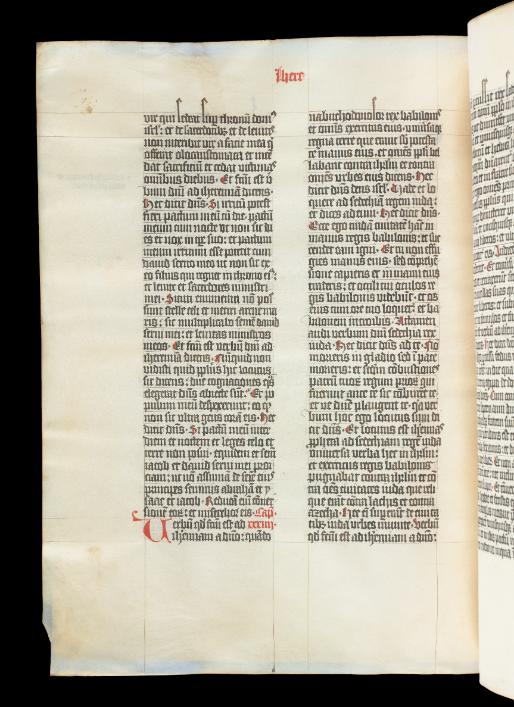 Jhere
vir qui sedeat sup thronū dom⁹
isrl': et de sacerdotibꝫ et de leuitis
non interibit vir a facie mea q̇
offerat olocaustomata et incē
dat sacrificiū et cedat victimas
omnibus diebus. Et fcm̄ est v̾
bum dn̄i ad iheremiā dicens.
Hec dicit dn̄s. Si irritū potest
fieri pactum meū cū die et pactū
meum cum nocte vt non sit di
es et nox in tp̄e suo: et pactum
meum irritum esse poterit cum
dauid seruo meo ut non sit ex
eo filius qui regnet in throno ei⁹:
et leuite et sacerdotes ministri
mei. Sicut enumerari nō pos
sunt stelle celi et metiri arena ma
ris: sic multiplicabo semē dauid
serui mei: et leuitas ministros
meos. Et fcm̄ est verbū dn̄i ad
iheremiā dicens. Nūquid non
vidisti quid pplūs hic locutus
sit dicens: due cognationes q̄s
elegerat dn̄s abiecte sūt: Et po
pulum meū despexerunt: eo q̇
non sit vltra gens corā eis. Hec
dicit dn̄s. Si pactū meū inter
diem et noctem et leges celo et
terre non posui: equidem et semē
iacob et dauid serui mei proi
ciam: ut nō assumā de semīe ei⁹
principes seminis abrahā et y
saac et iacob. Reducā eīm conuer
sionē eoꝝ: et miserebor eis. Cap.
Uerbū qd̄ fcm̄ est ad xxxiiii.
iheremiam a dn̄o: quādo
nabuchodonosor rex babilonis
et omnis exercitus eius. vniu̾saqꝫ
regna terre que erant sub potesta
te manus eius. et omēs ppl̄i bel
labant contra ihrl̄m et contra
omnēs vrbes eius dicens. Hec
dicit dn̄s deus isrl'. Uade et lo
quere ad sedechiā regem iuda:
et dices ad eum. Hec dicit dn̄s.
Ecce ego tradā ciuitatē hāc in
manus regis babilonis: et suc
cendet eam igni. Et tu non effu
gies manus eius. sed cōprehē
sione capieris et in manu eius
traderis: et oculi tui oculos re
gis babilonis videbūt: et os
eius cum ore tuo loquet̾: et ba
bilonem introibis. Attamen
audi verbum dn̄i sedechia rex
iuda. Hec dicit dn̄s ad te. Nō
morieris in gladio sed ī pace
morieris: et secm̄ cōbustiones
patrū tuoꝝ regum prioꝝ qui
fuerunt ante te sic cōburēt te.
et ve dn̄e plangent te. q̇a ver
bum hoc ego locutus sum di
cit dn̄s. Et locutus est iheremias
ppheta ad sedechiam regē iuda
vniuersa verba hec in ihrl̄m:
et exercitus regis babilonis
pugnabat contra ihrl̄m et cō
tra oēs ciuitates iuda que reli
que erāt cōtra lachis et contra
azecha. Hee eīm supersūt de ciuita
tibꝫ iuda vrbes munite. Uerbū
qd̄ fcm̄ est ad iheremiam a dn̄o: